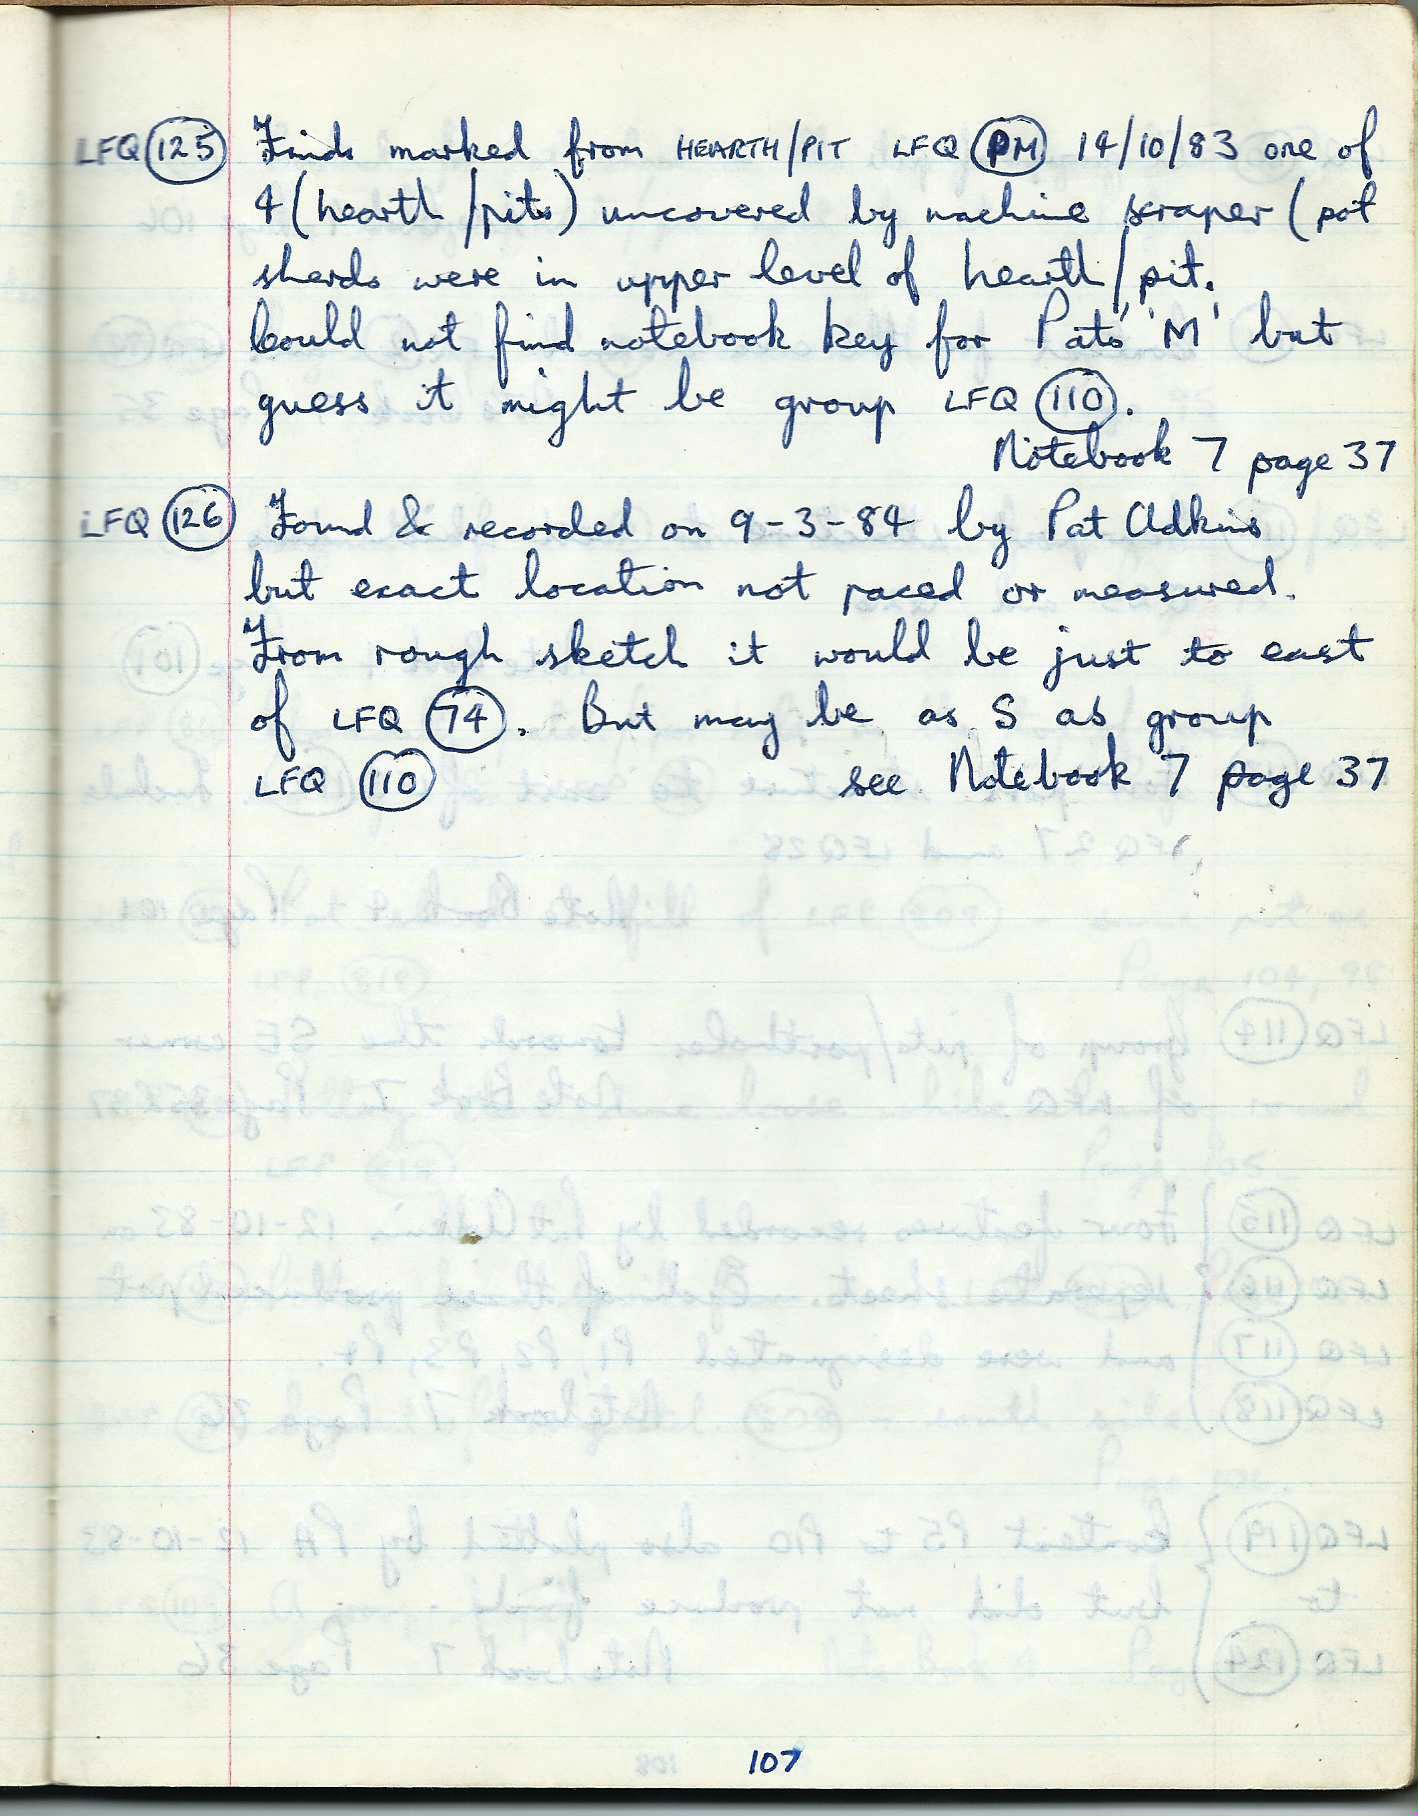 LFQ 125 Finds marked from HEARTH/PIT LFQ PM 14/10/83 one of
4 (hearth/pits) uncovered by machine scraper (pot
sherds were in upper level of hearth/pit.
Could not find notebook key for Pats 'M' but
guess it might be group LFQ 110.
Notebook 7 page 37
LFQ 126 Found & recorded on 9-3-84 by Pat Adkins
but exact location not paced or measured.
From rough sketch it would be just to east
of LFQ 74. But may be as S as group
LFQ 110 see Notebook 7 page 37
107